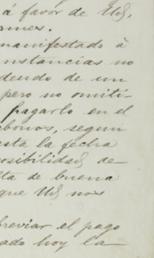 á favor de Ud,
ormes.
manifestado à
nstancias no
deudo de un
pero no omiti-
pagarlo en el
bonos, segun
esta la fecha
osibilidad de
lta de buena
que Ud nos
breviar el pago
ado hoy la